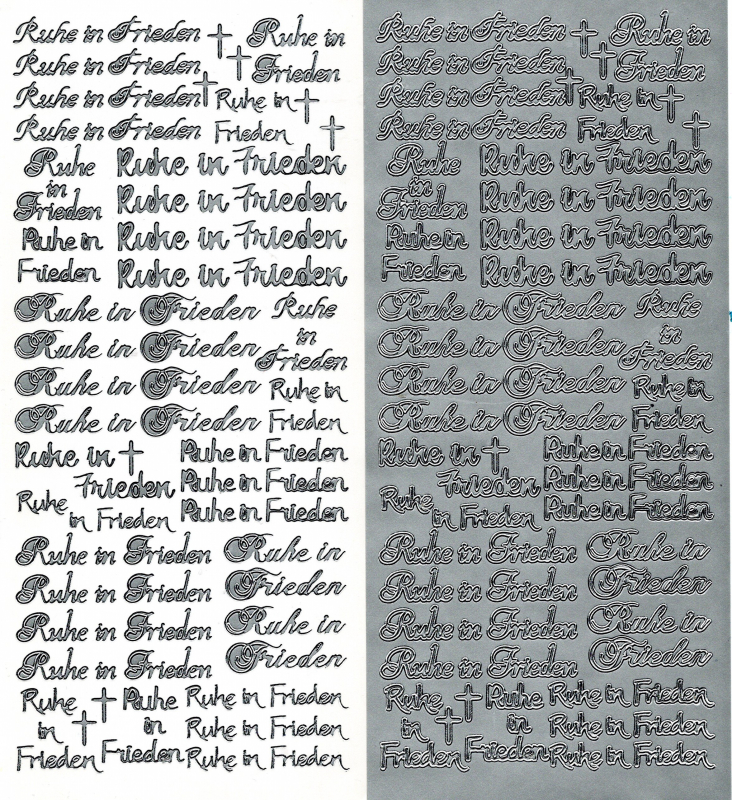 Ruhe in Frieden
Ruhe in Frieden
Ruhe in Frieden
Ruhe in Frieden
Ruhe in
Frieden
Ruhe in
Frieden
Ruhe
in
Frieden
Ruhe in
Frieden
Ruhe in Frieden
Ruhe in Frieden
Ruhe in Frieden
Ruhe in Frieden
Ruhe in Frieden
Ruhe in Frieden
Ruhe in Frieden
Ruhe in Frieden
Ruhe
in
Frieden
Ruhe in
Frieden
Ruhe in
Frieden
Ruhe
in Frieden
Ruhe in Frieden
Ruhe in Frieden
Ruhe in Frieden
Ruhe in Frieden
Ruhe in Frieden
Ruhe in Frieden
Ruhe in Frieden
Ruhe in
Frieden
Ruhe in
Frieden
Ruhe
in
Frieden
Ruhe
in
Frieden
Ruhe in Frieden
Ruhe in Frieden
Ruhe in Frieden
Ruhe in Frieden
Ruhe in Frieden
Ruhe in Frieden
Ruhe in Frieden
Ruhe in
Frieden
Ruhe in
Frieden
Ruhe
in
Frieden
Ruhe in
Frieden
Ruhe in Frieden
Ruhe in Frieden
Ruhe in Frieden
Ruhe in Frieden
Ruhe in Frieden
Ruhe in Frieden
Ruhe in Frieden
Ruhe in Frieden
Ruhe
in
Frieden
Ruhe in
Frieden
Ruhe in
Frieden
Ruhe
in Frieden
Ruhe in Frieden
Ruhe in Frieden
Ruhe in Frieden
Ruhe in Frieden
Ruhe in Frieden
Ruhe in Frieden
Ruhe in Frieden
Ruhe in
Frieden
Ruhe in
Frieden
Ruhe
in
Frieden
Ruhe
in
Frieden
Ruhe in Frieden
Ruhe in Frieden
Ruhe in Frieden